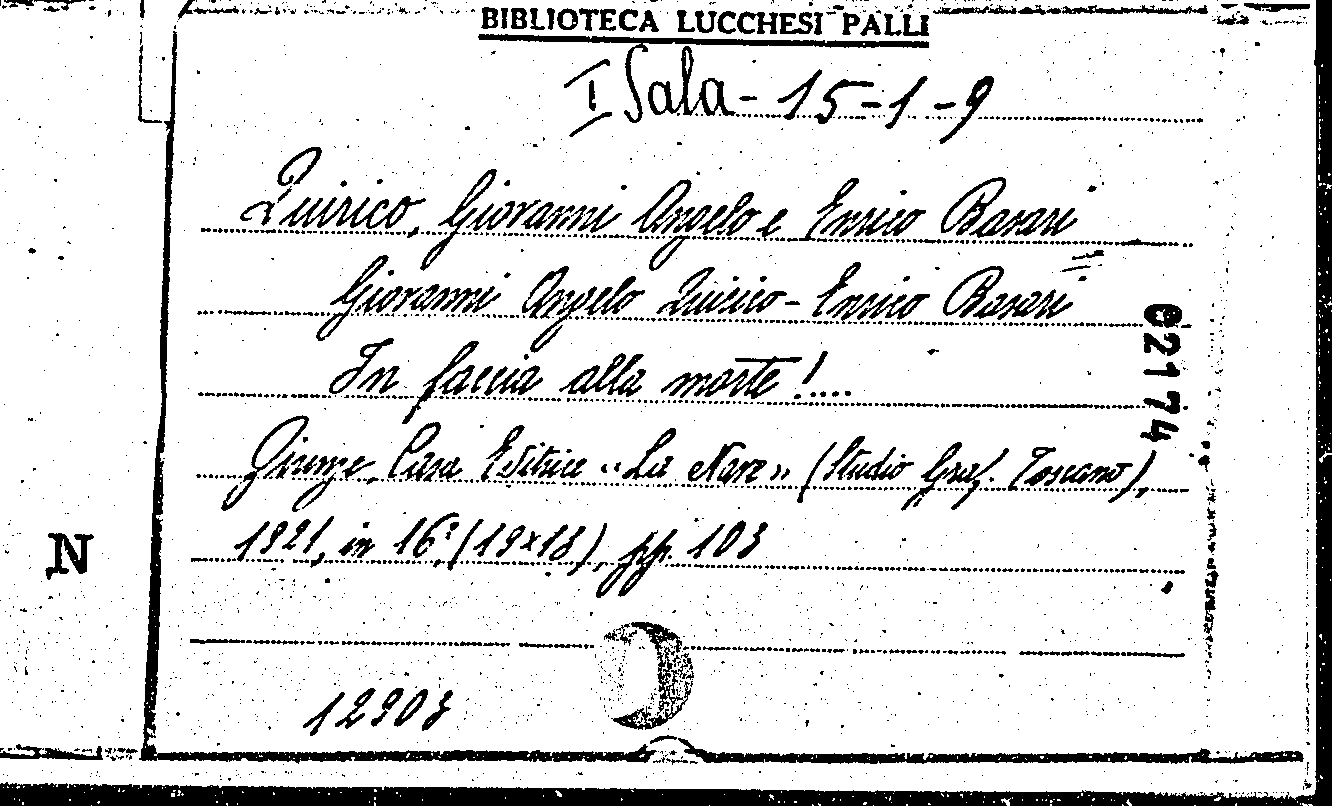 BIBLIOTECA LUCCHESI PALLI
I Sala - 15-1-9
Quirico, Giovanni Angelo e Enrico Basari
Giovanni Angelo Quirico - Enrico Basari
In faccia alla morte!....
Firenze, Casa Editrice "La Nave" (Studio Graf. Toscano),
1921, in 16° (19x13), pp. 103
62174
N
12903